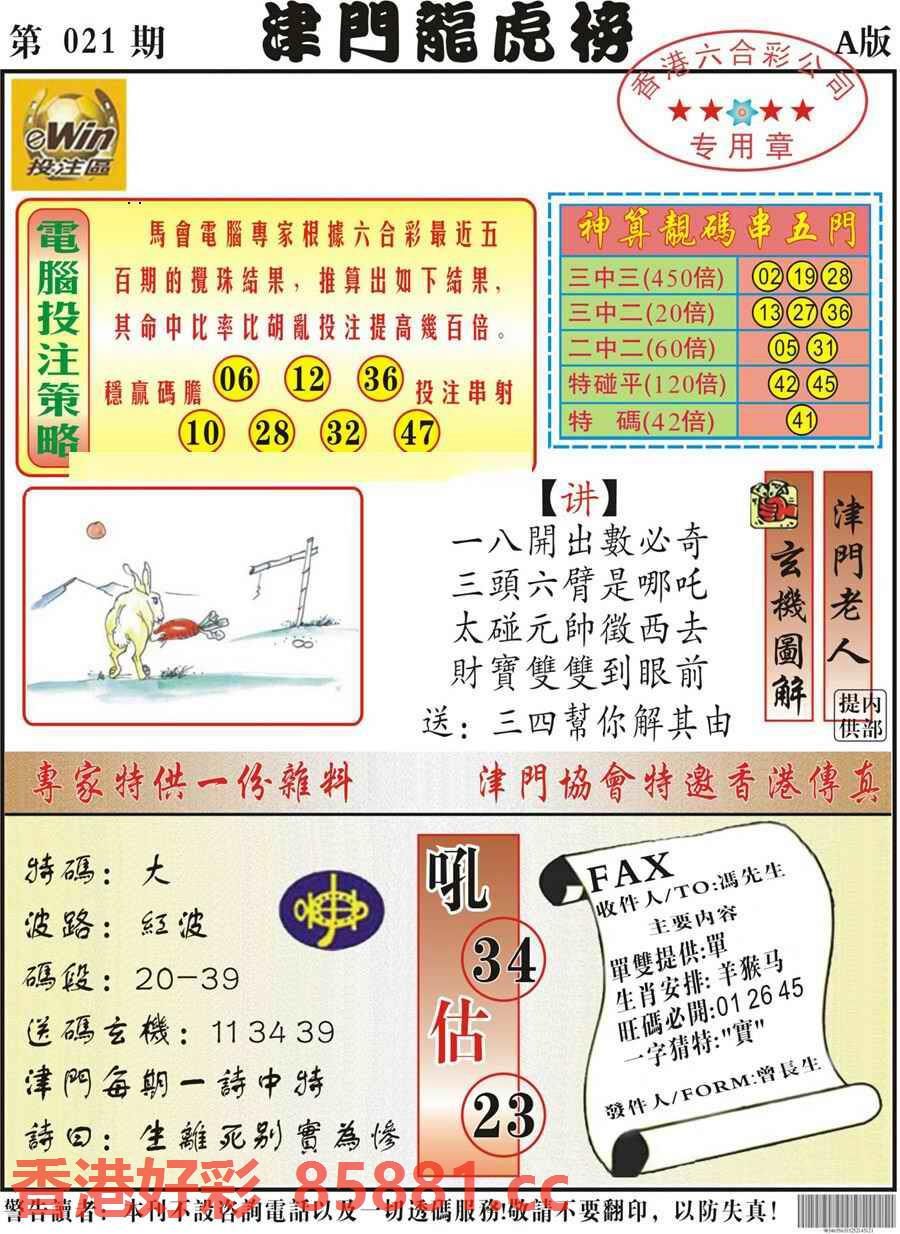 第 021 期
津門龍虎榜
A版
香港六合彩公司
专用章
eWin
投注區
電腦投注策略
馬會電腦專家根據六合彩最近五
百期的攪珠結果，推算出如下結果，
其命中比率比胡亂投注提高幾百倍。
穩贏碼膽 06 12 36 投注串射
10 28 32 47
神算靚碼串五門
三中三(450倍) 02 19 28
三中二(20倍) 13 27 36
二中二(60倍) 05 31
特碰平(120倍) 42 45
特 碼(42倍) 41
【讲】
一八開出數必奇
三頭六臂是哪吒
太碰元帥徵西去
財寶雙雙到眼前
送：三四幫你解其由
玄機圖解
津門老人
内部提供
專家特供一份雜料
津門協會特邀香港傳真
特碼：大
波路：紅波
碼段：20-39
送碼玄機：11 34 39
津門每期一詩中特
詩曰：生離死别實為慘
吼
34
估
23
FAX
收件人/TO:馮先生
主要内容
單雙提供:單
生肖安排:羊猴马
旺碼必開:01 26 45
一字猜特:"實"
發件人/FORM:曾長生
香港好彩 85881.cc
警告讀者：本刊不設咨詢電話以及一切透碼服務!敬請不要翻印，以防失真!